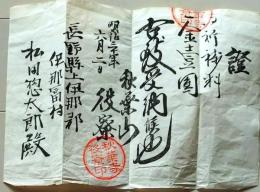 證
一金壹圓
右敬受納候也
秋葉山
役寮
明治三年
六月二日
長野縣上伊那郡
伊那富村
松田惣太郎殿